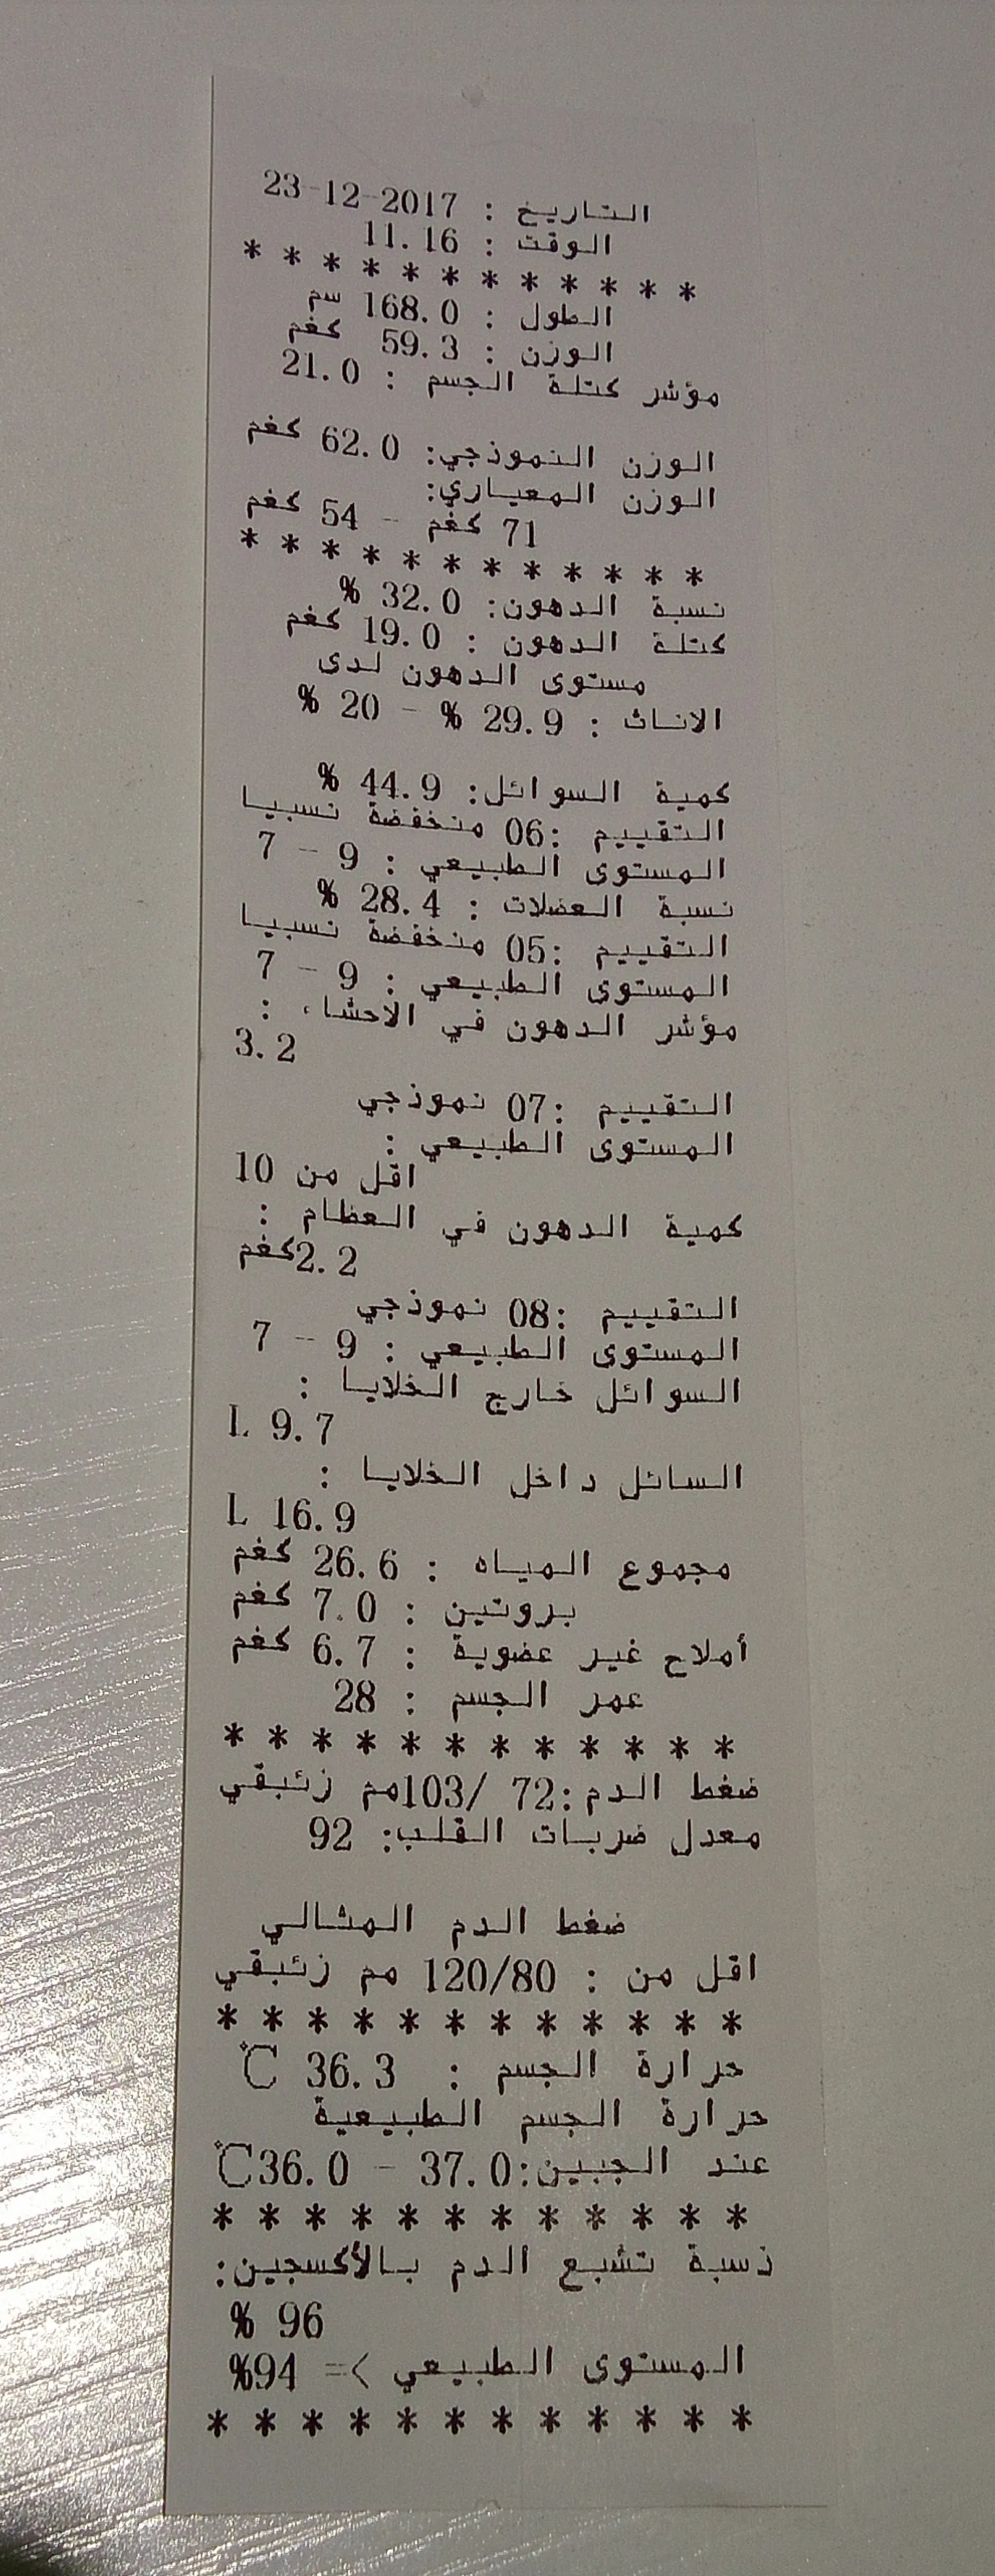 التاريخ : 23-12-2017
الوقت : 11.16
* * * * * * * * * * * *
الطول : 168.0 سم
الوزن : 59.3 كغم
مؤشر كتلة الجسم : 21.0
الوزن النموذجي: 62.0 كغم
الوزن المعياري:
71 كغم - 54 كغم
* * * * * * * * * * * *
نسبة الدهون: 32.0 %
كتلة الدهون : 19.0 كغم
مستوى الدهون لدى
الاناث : 29.9 % - 20 %
كمية السوائل: 44.9 %
التقييم :06 منخفضة نسبيا
المستوى الطبيعي : 9 - 7
نسبة العضلات : 28.4 %
التقييم :05 منخفضة نسبيا
المستوى الطبيعي : 9 - 7
مؤشر الدهون في الأحشاء :
3.2
التقييم :07 نموذجي
المستوى الطبيعي :
اقل من 10
كمية الدهون في العظام :
2.2كغم
التقييم :08 نموذجي
المستوى الطبيعي : 9 - 7
السوائل خارج الخلايا :
9.7 L
السائل داخل الخلايا :
16.9 L
مجموع المياه : 26.6 كغم
بروتين : 7.0 كغم
أملاح غير عضوية : 6.7 كغم
عمر الجسم : 28
* * * * * * * * * * * *
ضغط الدم :72 /103مم زئبقي
معدل ضربات القلب: 92
ضغط الدم المثالي
اقل من : 120/80 مم زئبقي
* * * * * * * * * * * *
حرارة الجسم : 36.3 ℃
حرارة الجسم الطبيعية
عند الجبين:37.0 - 36.0℃
* * * * * * * * * * * *
نسبة تشبع الدم بالأكسجين:
96 %
المستوى الطبيعي >= 94%
* * * * * * * * * * * *